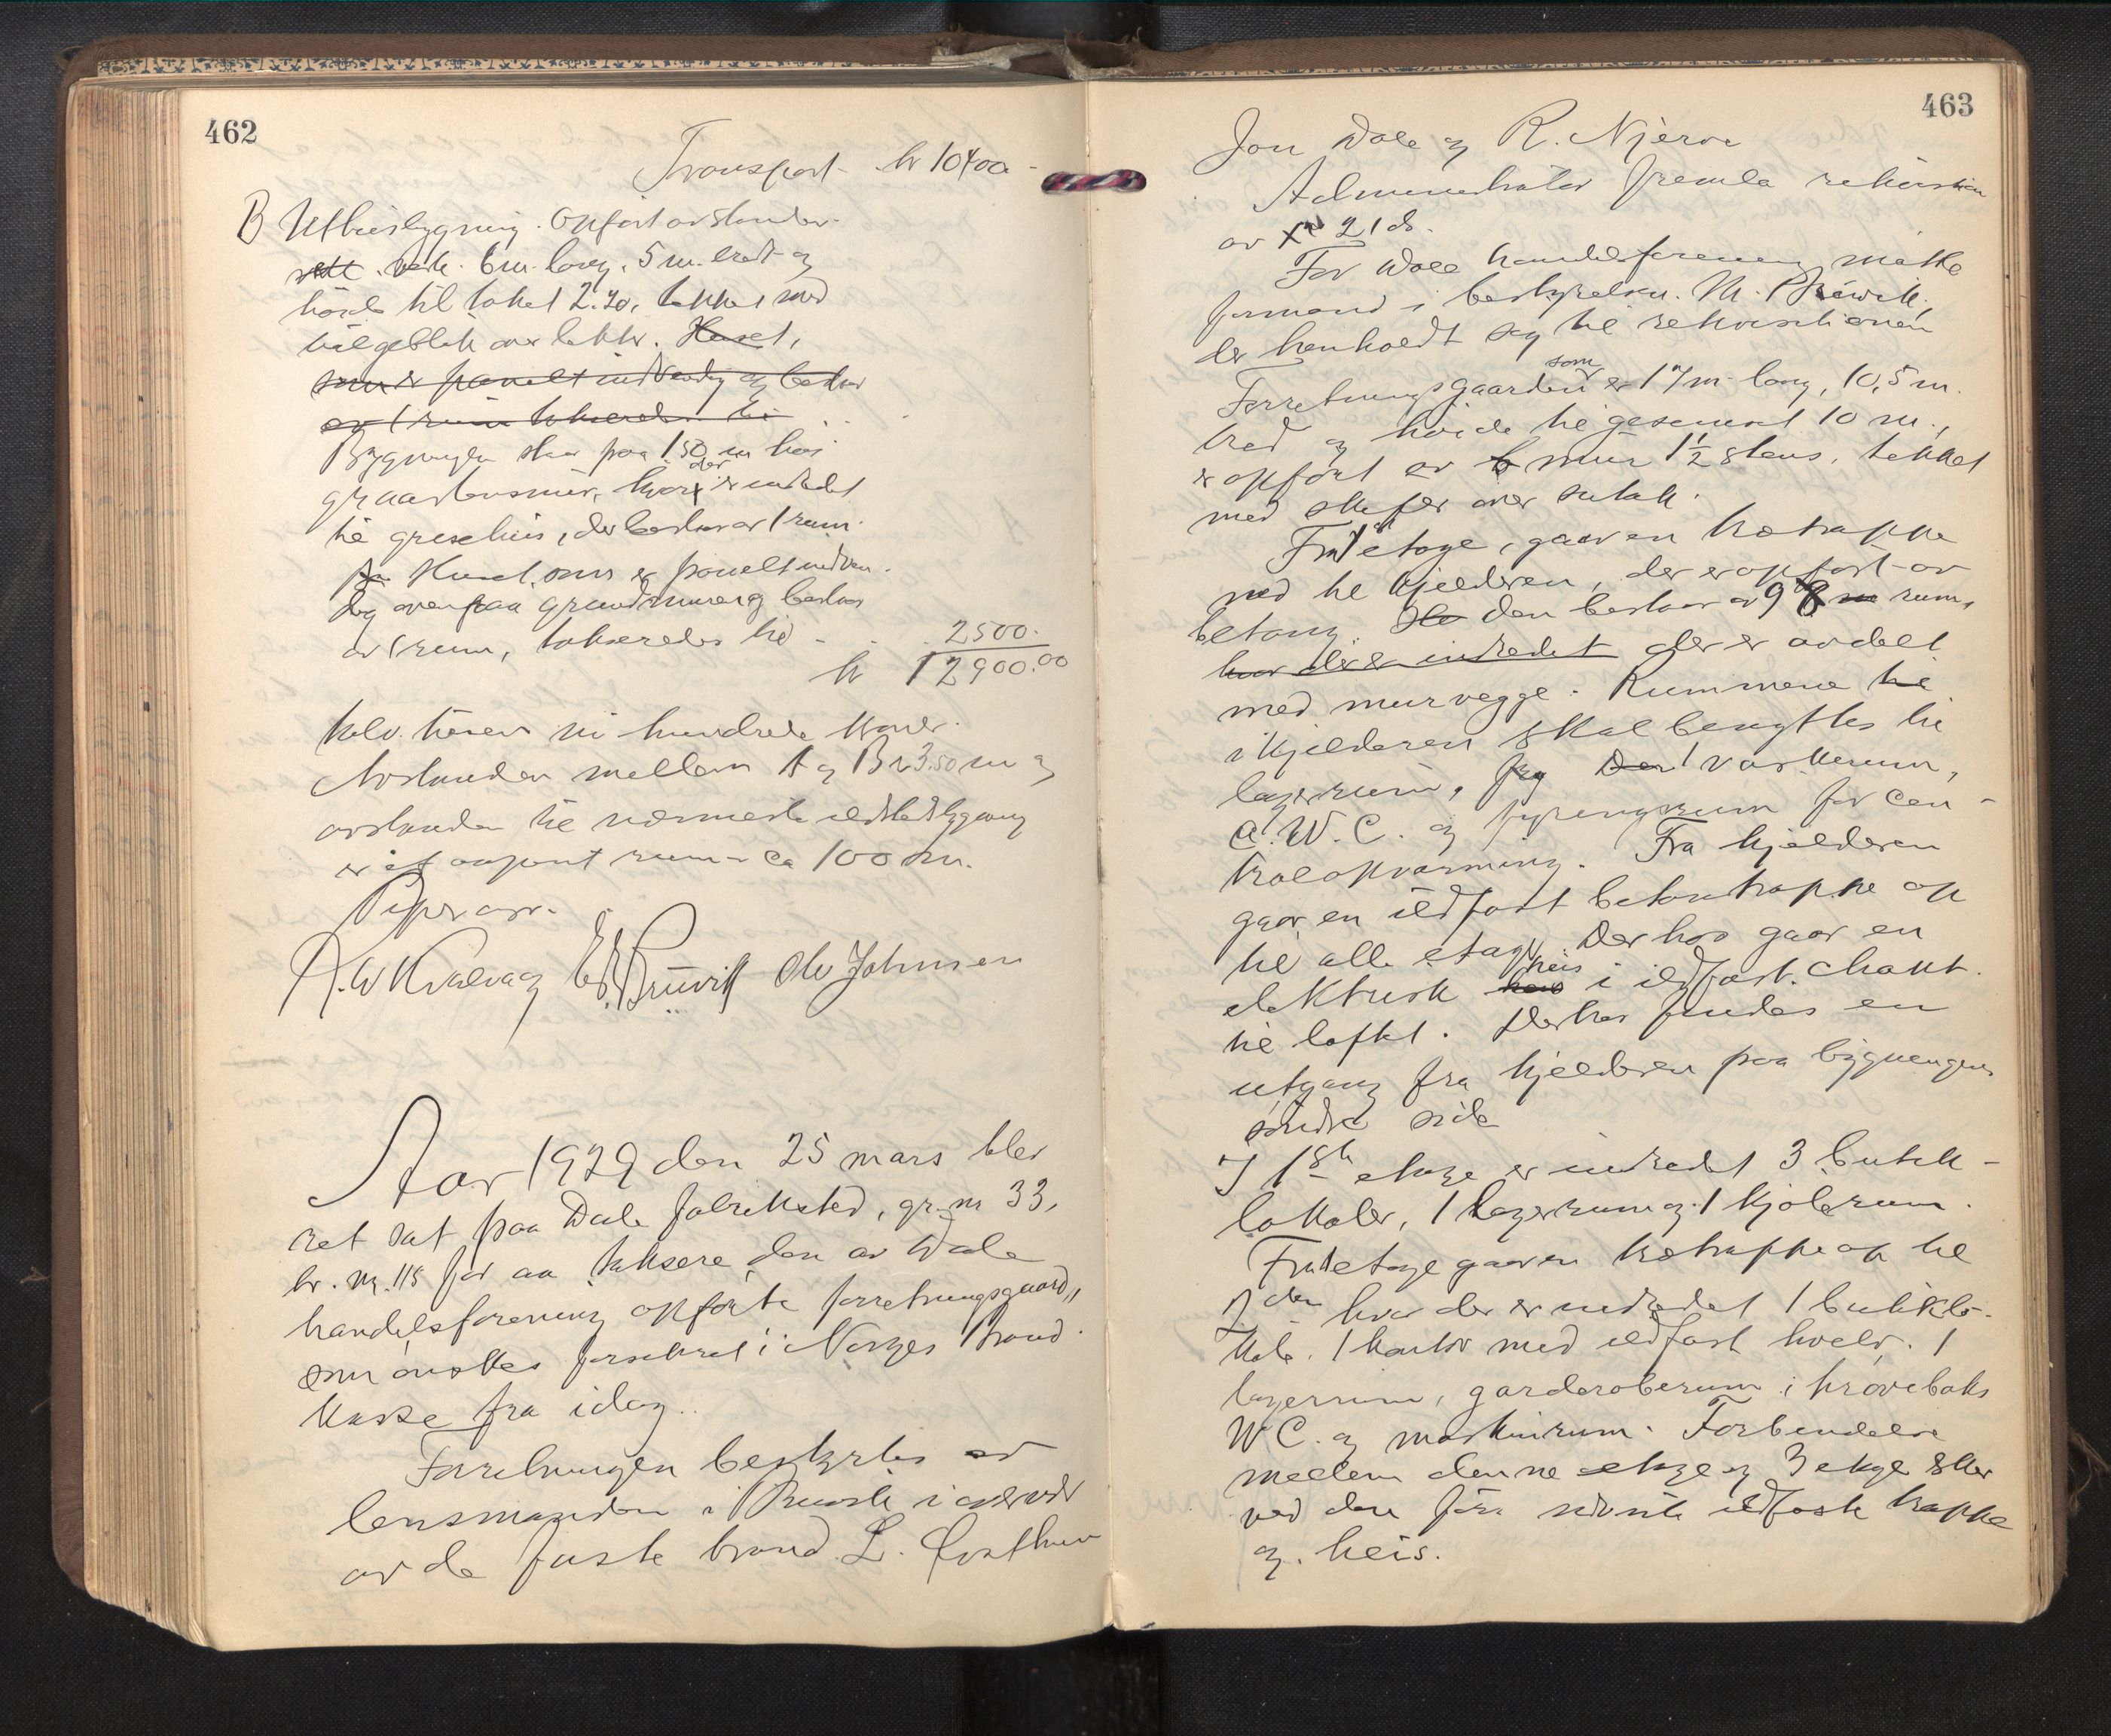 462
Transport kr 10400 -
B Uthusbygning. Opført av stender-
verk. 6 m. lang, 5 m. bred og
høide til taket 2.70, tekket med
bølgeblik over lekter. Huset,
som er panelt indvendig og bestaar
av 1 rum takseredes til
Bygningen staar paa 1.50 m høi
graastensmur, hvor der er indredet
til grisehus, der bestaar av 1 rum.
Huset, som er panelt indven-
dig ovenpaa grundmuren og bestaar
av 1 rum, takseredes til - 2500.
kr 12900.00
tolv tusen ni hundrede kroner.
Avstanden mellem A og B er 3.50 m og
avstanden til nærmeste ildstedsbygning
er et aapent rum - ca 100 m.
A. W Kvalvaag Ed. Bruvik Ole Johnsen
Aar 1929 den 25 mars blev
ret sat paa Dale fabriksted, gr. nr 33,
br. nr. 115 for aa taksere den av Dale
handelsforening opførte forretningsgaard,
som ønskes forsikret i Norges Brand-
kasse fra idag.
Forretningen bestyrtes av
lensmanden i Bruvik i nærvær
av de faste brand. L.
463
Jon Dale og R. Njerve
Administrator fremla rekvisition
av 21 ds.
For Dale handelsforening møtte
formand i bestyrelsen. M. Bruvik,
der henholdt seg til rekvisitionen
Forretningsgaarden som er 17 m lang, 10,5 m.
bred og høide til gesemset 10 m.,
er opført av mur 1½ stens, tekket
med skifer over sutak.
Fra 1ste etage, gaar en trætrappe
ned til kjelderen, der er opført av
betong. den bestaar av 9 rum,
hvor der er indredet der er avdelt
med murvegge. Rummene til
i kjelderen skal benyttes til
lagerrum, 1 vaskerum,
W. C. og fyringsrum for cen-
tralopvarming. Fra kjelderen
gaar en ildfast betontrappe op
til alle etager. Derhos gaar en
elektrisk heis i ildfast chakt.
til loftet. Derhos findes en
utgang fra kjelderen paa bygningens
søndre side
I 1ste etage er indredet 3 butik-
lokaler, 1 lagerrum og 1 kjølerum.
Fra 1 etage gaar en trætrappe op til
2den hvor der er indredet 1 butiklo-
kale. 1 kontor med ildfast hvelv. 1
lagerrum, garderoberum i
W C. og maskinrum. Forbindelse
mellem denne etage og 3 etage sker
ved den før nævnte ildfaste trappe
og heis.